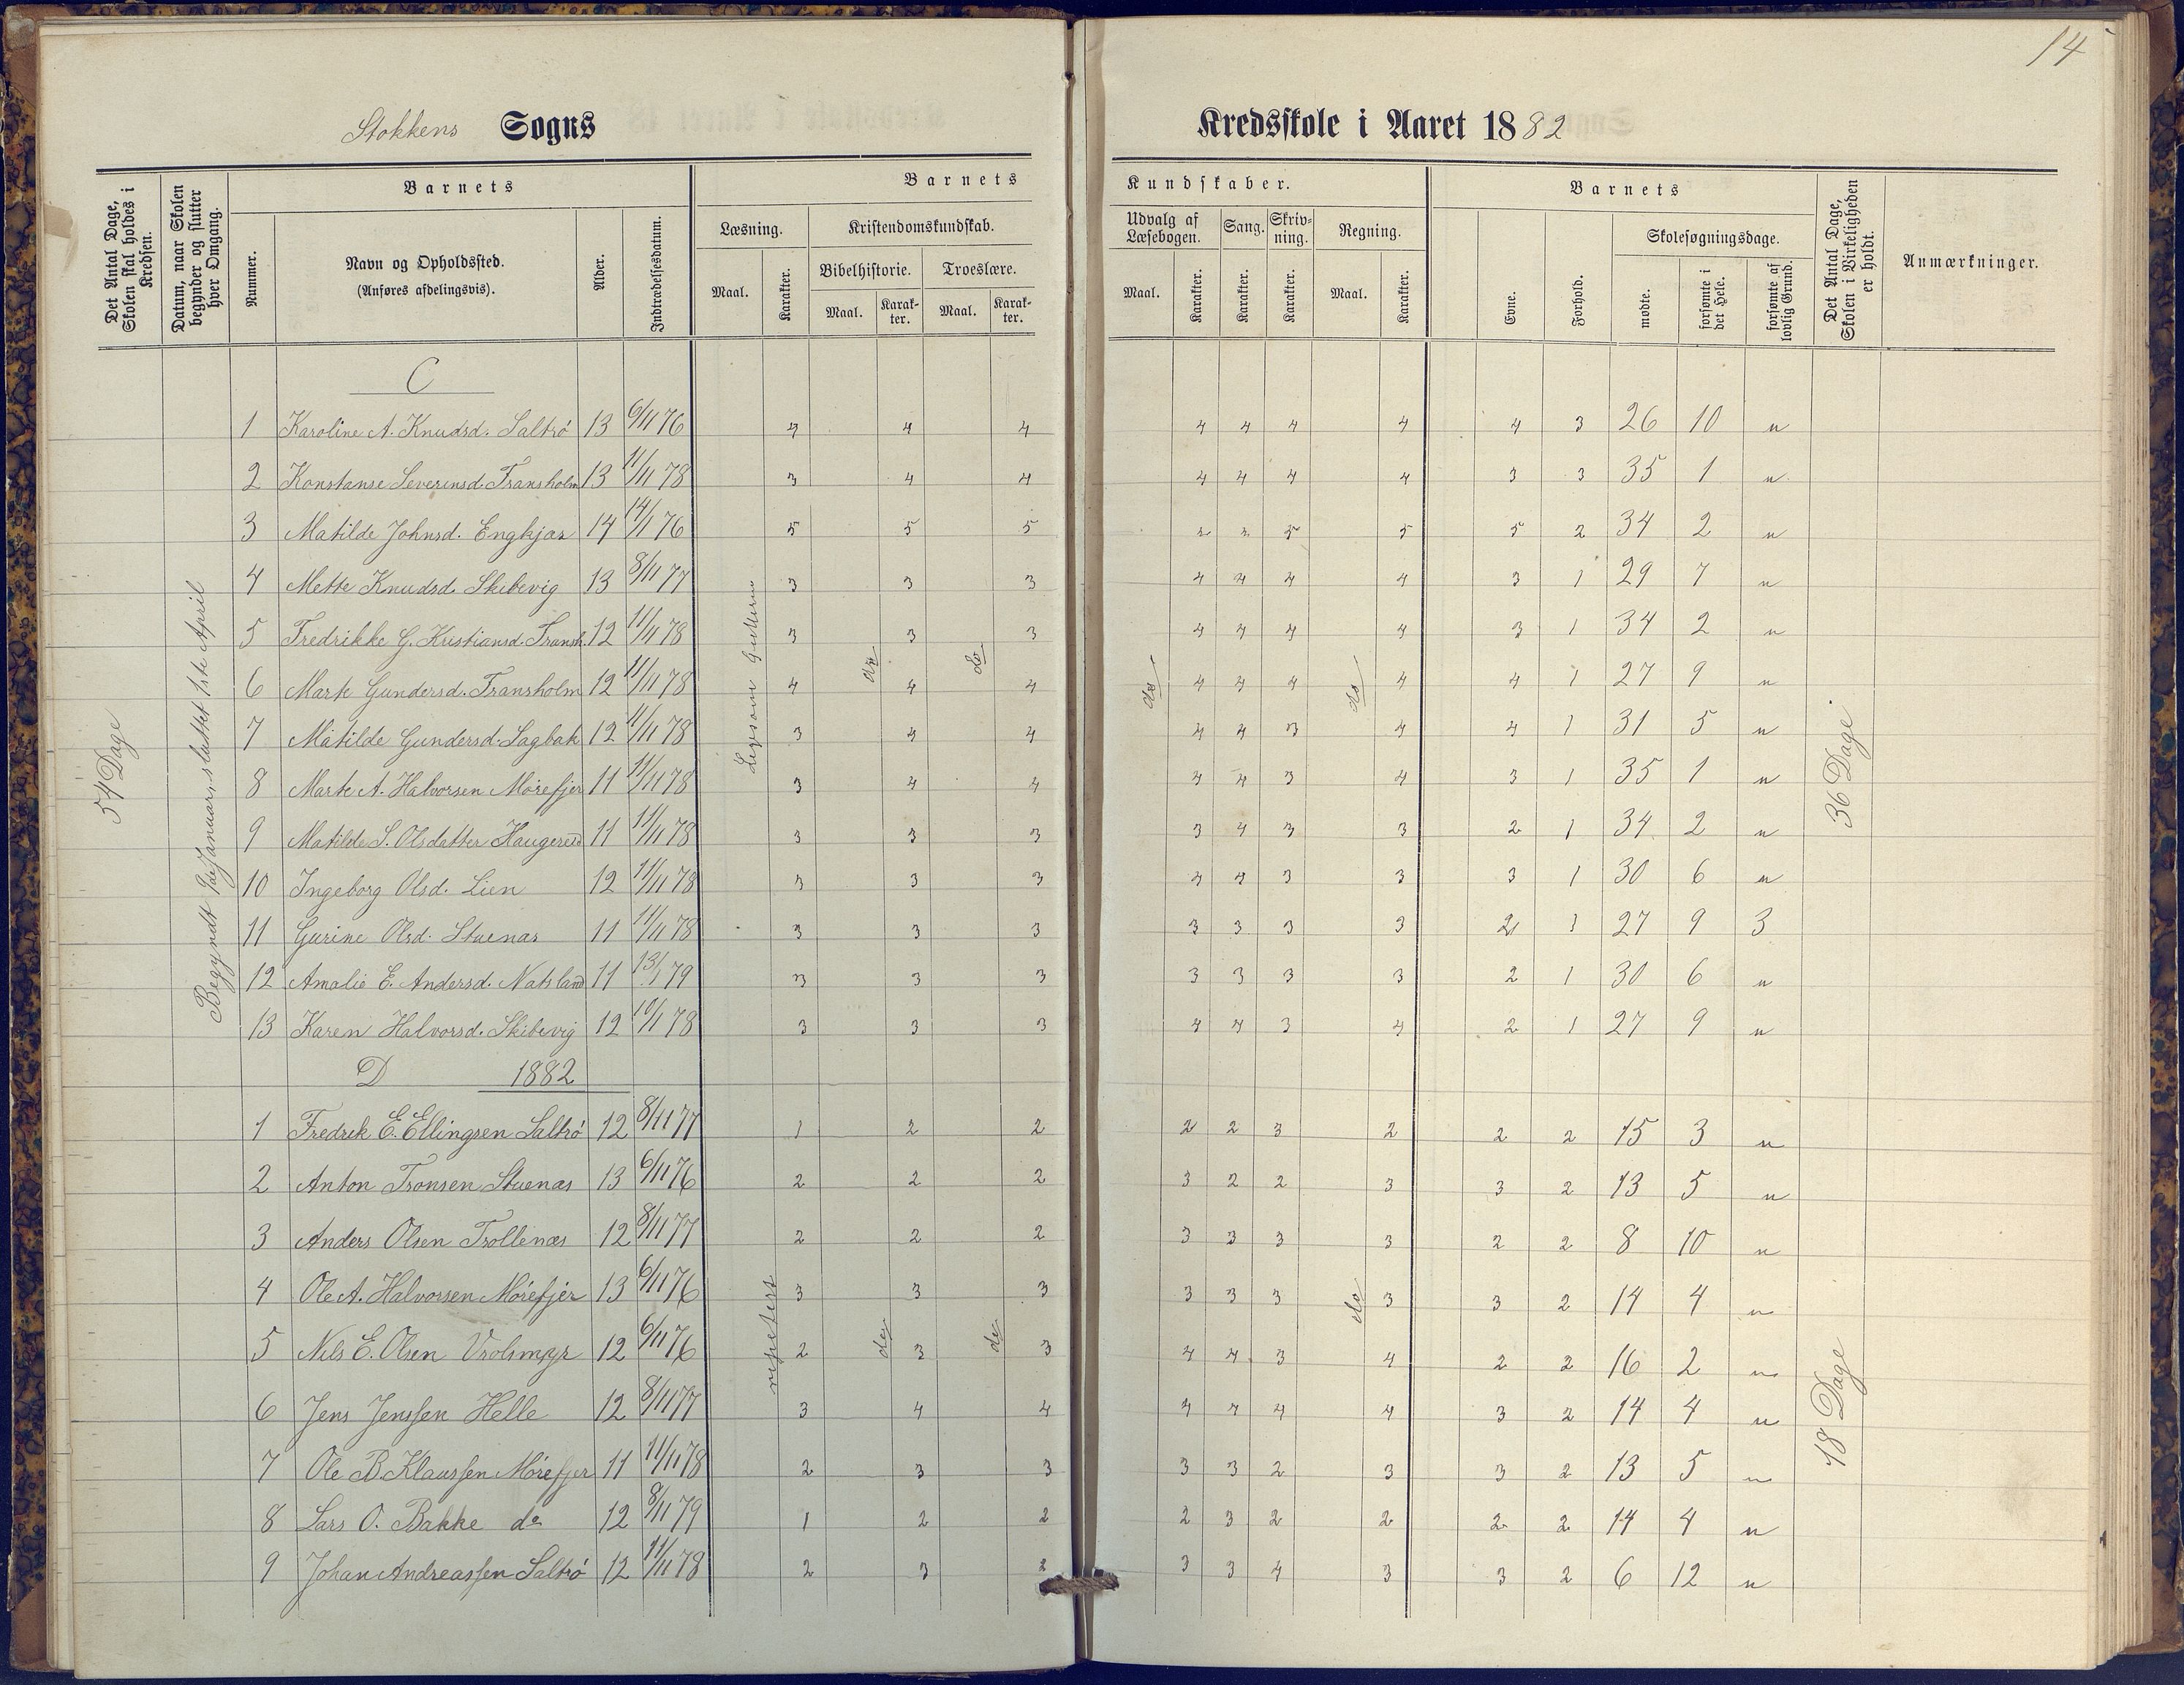 14
Stokkens Sogns Kredsskole i Aaret 1882
Det Antal Dage, Skolen skal holdes i Kredsen.
Datum, naar Skolen begynder og slutter hver Omgang.
Barnets
Nummer.
Navn og Opholdssted. (Anføres afdelingsvis).
Alder.
Indtrædelsesdatum.
Barnets Kundskaber.
Læsning. Maal. Karakter.
Kristendomskundskab.
Bibelhistorie. Maal. Karakter.
Troeslære. Maal. Karakter.
Udvalg af Læsebogen. Maal. Karakter.
Sang. Karakter.
Skrivning. Karakter.
Regning. Maal. Karakter.
Barnets
Evne. Forhold.
Skolesøgningsdage.
mødte. forsømte i det Hele. forsømte af lovlig Grund.
Det Antal Dage, Skolen i Virkeligheden er holdt.
Anmærkninger.
54 Dage
Januar, sluttet 1ste April
do do do do
36 Dage
C
1 Karoline A. Knudsd. Saltrö 13 6/11 76 4 4 4 4 4 4 4 4 3 26 10 "
2 Konstanse Severinsd. Fransholm 13 11/11 78 3 4 4 4 4 4 4 3 3 35 1 "
3 Matilde Johnsd. Engkjær 14 14/1 76 5 5 5 5 5 5 2 34 2 "
4 Mette Knudsd. Skibevig 13 8/11 77 3 3 3 4 4 4 4 3 1 29 7 "
5 Fredrikke G. Kristiansd. Fransh. 12 11/11 78 3 3 3 4 4 4 4 3 1 34 2 "
6 Marte Gundersd. Fransholm 12 11/11 78 4 4 4 4 4 4 4 4 1 27 9 "
7 Matilde Gundersd. Sagbak 12 11/11 78 3 4 4 4 4 3 4 4 1 31 5 "
8 Marte A. Halvorsen Mörefjer 11 11/11 78 3 4 4 4 4 3 4 3 1 35 1 "
9 Matilde S. Olsdatter Haugerud 11 11/11 78 3 3 3 3 4 3 3 2 1 34 2 "
10 Ingeborg Olsd. Lien 12 11/11 78 3 3 3 4 4 3 3 3 1 30 6 "
11 Gurine Olsd. Stuenæs 11 11/11 78 3 3 3 3 3 3 3 2 1 27 9 3
12 Amalie E. Andersd. Natsland 11 13/1 79 3 3 3 3 3 3 3 2 1 30 6 "
13 Karen Halvorsd. Skibevig 12 10/1 78 3 3 3 4 4 3 4 2 1 27 9 "
D 1882
1 Fredrik E. Ellingsen Saltrö 12 8/11 77 1 2 2 2 2 3 2 2 2 15 3 "
2 Anton Tronsen Stuenæs 13 6/11 76 2 2 2 3 2 2 3 3 2 13 5 "
3 Anders Olsen Trollenæs 12 8/11 77 2 2 2 3 3 3 3 2 2 8 10 "
4 Ole A. Halvorsen Mörefjer 13 6/11 76 3 3 3 3 3 3 3 3 2 14 4 "
5 Nils E. Olsen Vrolsmyr 12 6/11 76 2 3 3 4 4 3 4 2 2 16 2 "
6 Jens Jenssen Helle 12 8/11 77 3 4 4 4 4 4 4 3 2 14 4 "
7 Ole B. Klaussen Mörefjer 11 11/11 78 2 3 3 3 3 2 3 3 2 13 5 "
8 Lars O. Bakke do 12 8/11 79 1 2 2 2 3 2 2 2 2 14 4 "
9 Johan Andreassen Saltrö 12 11/11 78 2 3 2 3 3 4 3 3 2 6 12 "
repetert do do do
18 Dage